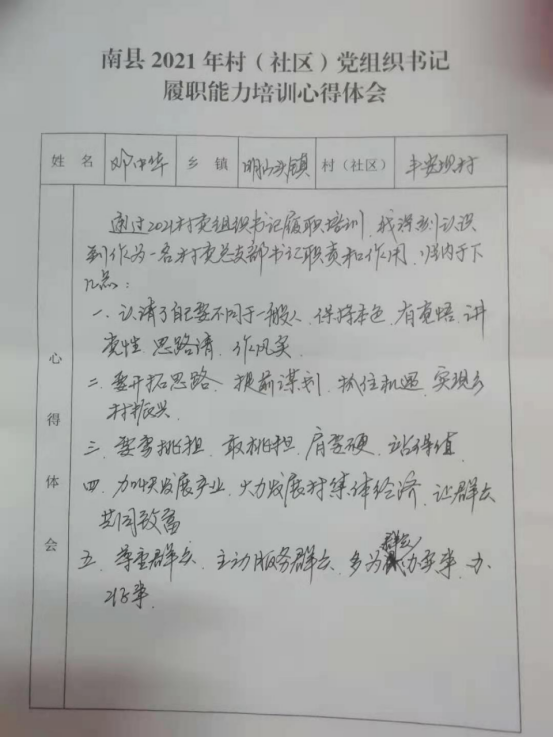 南县2021年村（社区）党组织书记
履职能力培训心得体会
姓名 邓中华 乡镇 明山头镇 村（社区） 丰安垸村
心得体会
通过2021村党组织书记履职培训，我深刻认识
到作为一名村党总支部书记职责和作用，归纳于下
几点：
一、认清了自己要不同于一般人、保持本色、有觉悟、讲
党性、思路清、作风实
二、要开拓思路、提前谋划、抓住机遇、实现乡
村振兴
三、要勇挑担、敢挑担、肩要硬、站得直
四、加快发展产业、大力发展村集体经济、让群众
共同致富
五、尊重群众、主动服务群众、多为群众办实事、办
好事